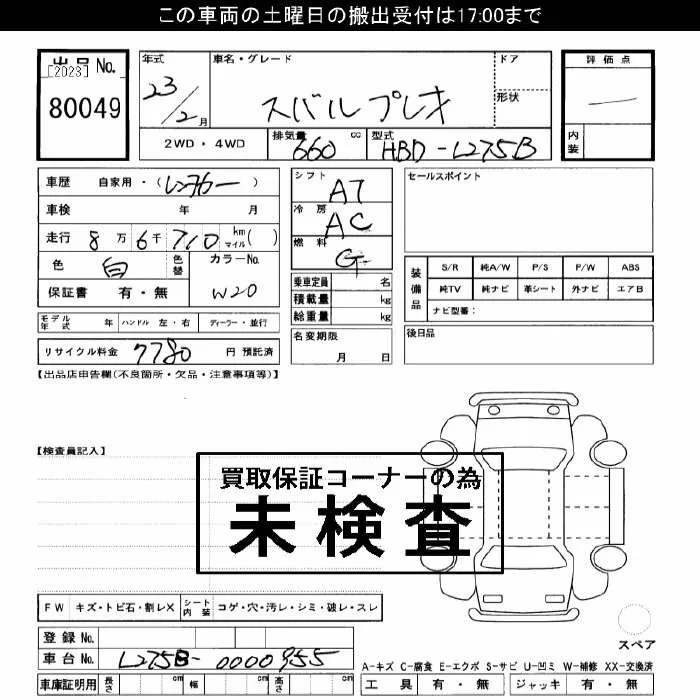 この車両の土曜日の搬出受付は17:00まで
出品 No.
[2023]
80049
年式
23/2月
車名・グレード
スバルプレオ
ドア
形状
評価点
内装
2WD・4WD
排気量 660 cc
型式 HBD-L275B
車歴 自家用・(レンタカー)
車検 年 月
走行 8万6千710 km マイル( )
色 白 色替
カラーNo. W20
保証書 有・無
シフト AT
冷房 AC
燃料 G
乗車定員 名
積載量 kg
総重量 kg
名変期限 月 日
セールスポイント
装備品
S/R 純A/W P/S P/W ABS
純TV 純ナビ 革シート 外ナビ エアB
ナビ型番:
後日品
モデル年式 年 ハンドル 左・右 ディーラー・並行
リサイクル料金 7780 円 預託済
【出品店申告欄(不良箇所・欠品・注意事項等)】
【検査員記入】
買取保証コーナーの為
未検査
FW キズ・トビ石・割レX シート内装 コゲ・穴・汚レ・シミ・破レ・スレ
登録 No.
車台 No. L275B-0000955
車庫証明用 長さ cm 幅 cm 高さ cm
スペア
A-キズ C-腐食 E-エクボ S-サビ U-凹ミ W-補修 XX-交換済
工具 有・無 ジャッキ 有・無